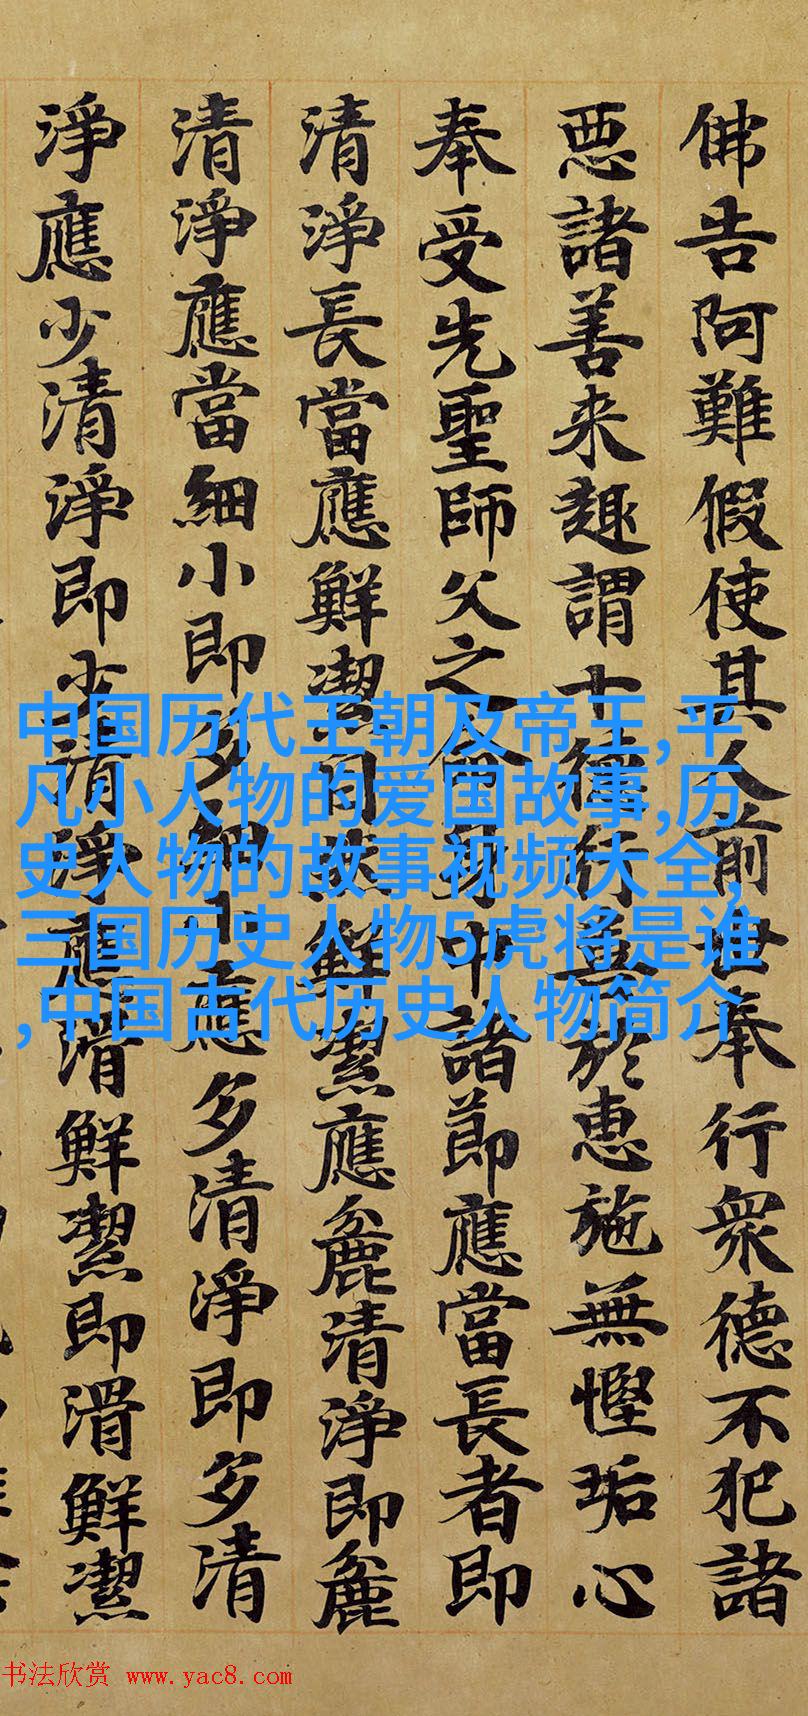 佛告阿難假使其人前世奉行衆德不犯諸
惡諸善来趣謂十德行於惠施無慳垢心
奉受先聖師父之命身中諸節應當長者即
清淨長當應鮮潔同然鮮潔應麁清淨即麁
清淨應當細小即多細小應多清淨即多清
淨應少清淨即少清淨應滑鮮潔即滑鮮潔
中国历代王朝及帝王,平
凡小人物的爱国故事,历
史人物的故事视频大全,
三国历史人物5虎将是谁
,中国古代历史人物简介
书法欣赏 www.yac8.com